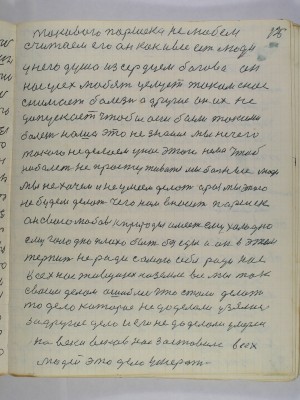 135
такового паршека не любем
считаем его он как и все сет люди
у него душа и сердцем богова он
нас всех любят целует таким нас
снимает болезн а другие он их не
допускает чтобы они были такими
болет наша это не знаем мы ничего
такого не делаем у нас этого нема чтоб
не болет не простуживатся мы больные люди
мы не хочем и не умеем делат а раз ты этого
не будем делат чего нам вносит паршек
он свою любов к природы имеет ему холодно
ему голодно плохо быт без еды а он в этом
терпит не ради самого себя ради нас
всех нас живущих на земле все мы так
своим делом ошиблис это стали делат
то дело которае не доделали узялис
за другое дело и его не доделали умерли
на веки веков нас заставило всех
людей это дело умерат